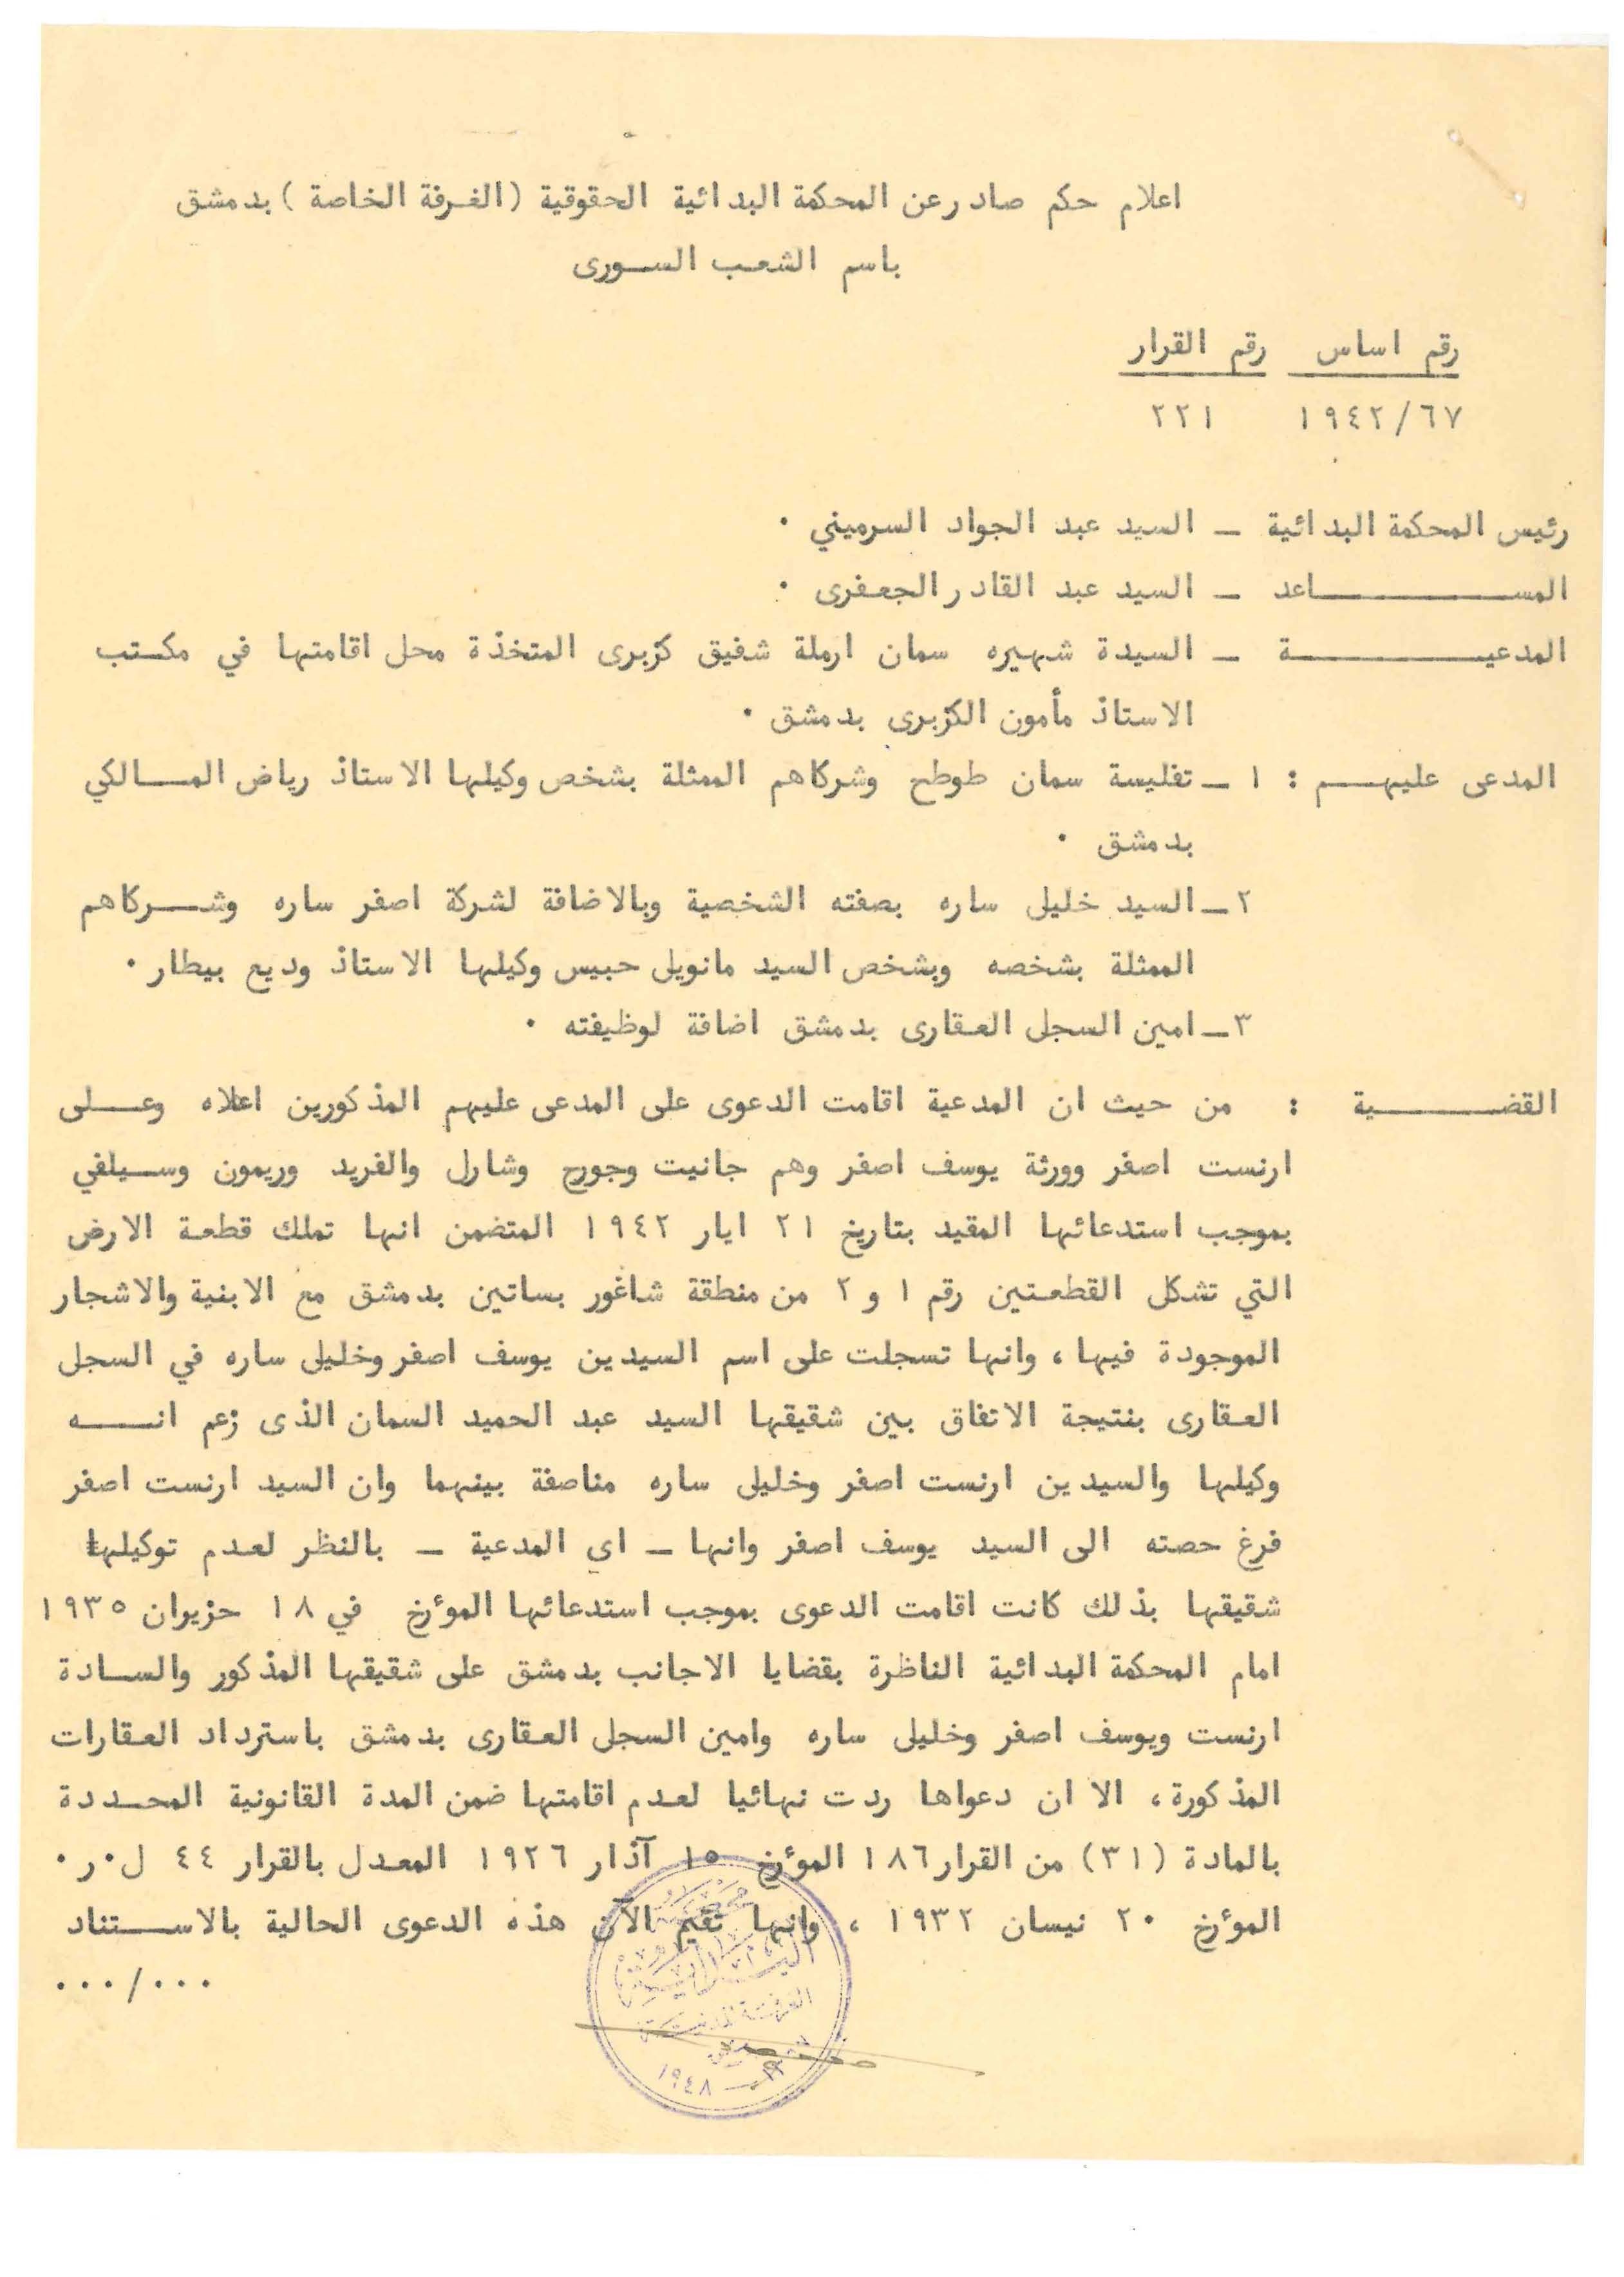 اعلام حكم صادر عن المحكمة البدائية الحقوقية (الغرفة الخاصة) بدمشق
باسم الشعب السورى
رقم اساس رقم القرار
١٩٤٢/٦٧ ٢٢١
رئيس المحكمة البدائية – السيد عبد الجواد السرميني ٠
المساعد – السيد عبد القادر الجعفرى ٠
المدعية – السيدة شهيره سمان ارملة شفيق كزبرى المتخذة محل اقامتها في مكتب
الاستاذ مأمون الكزبرى بدمشق ٠
المدعى عليهم : ١ – تفليسة سمان طوطح وشركاهم الممثلة بشخص وكيلها الاستاذ رياض المالكي
بدمشق ٠
٢ – السيد خليل ساره بصفته الشخصية وبالاضافة لشركة اصفر ساره وشركاهم
الممثلة بشخصه وبشخص السيد مانويل حبيس وكيلها الاستاذ وديع بيطار ٠
٣ – امين السجل العقارى بدمشق اضافة لوظيفته ٠
القضية : من حيث ان المدعية اقامت الدعوى على المدعى عليهم المذكورين اعلاه وعلى
ارنست اصفر وورثة يوسف اصفر وهم جانيت وجورج وشارل والفريد وريمون وسيلفي
بموجب استدعائها المقيد بتاريخ ٢١ ايار ١٩٤٢ المتضمن انها تملك قطعة الارض
التي تشكل القطعتين رقم ١ و ٢ من منطقة شاغور بساتين بدمشق مع الابنية والاشجار
الموجودة فيها ، وانها تسجلت على اسم السيدين يوسف اصفر وخليل ساره في السجل
العقارى بنتيجة الاتفاق بين شقيقها السيد عبد الحميد السمان الذى زعم انه
وكيلها والسيدين ارنست اصفر وخليل ساره مناصفة بينهما وان السيد ارنست اصفر
فرغ حصته الى السيد يوسف اصفر وانها – اي المدعية – بالنظر لعدم توكيلها
شقيقها بذلك كانت اقامت الدعوى بموجب استدعائها المؤرخ في ١٨ حزيران ١٩٣٥
امام المحكمة البدائية الناظرة بقضايا الاجانب بدمشق على شقيقها المذكور والسادة
ارنست ويوسف اصفر وخليل ساره وامين السجل العقارى بدمشق باسترداد العقارات
المذكورة ، الا ان دعواها ردت نهائيا لعدم اقامتها ضمن المدة القانونية المحددة
بالمادة (٣١) من القرار ١٨٦ المؤرخ ١٥ آذار ١٩٢٦ المعدل بالقرار ٤٤ ل٠ر٠
المؤرخ ٢٠ نيسان ١٩٣٢ ، وانها تقيم الآن هذه الدعوى الحالية بالاستناد
٠٠٠/٠٠٠
البدائية
الغرفة
١٩٤٨